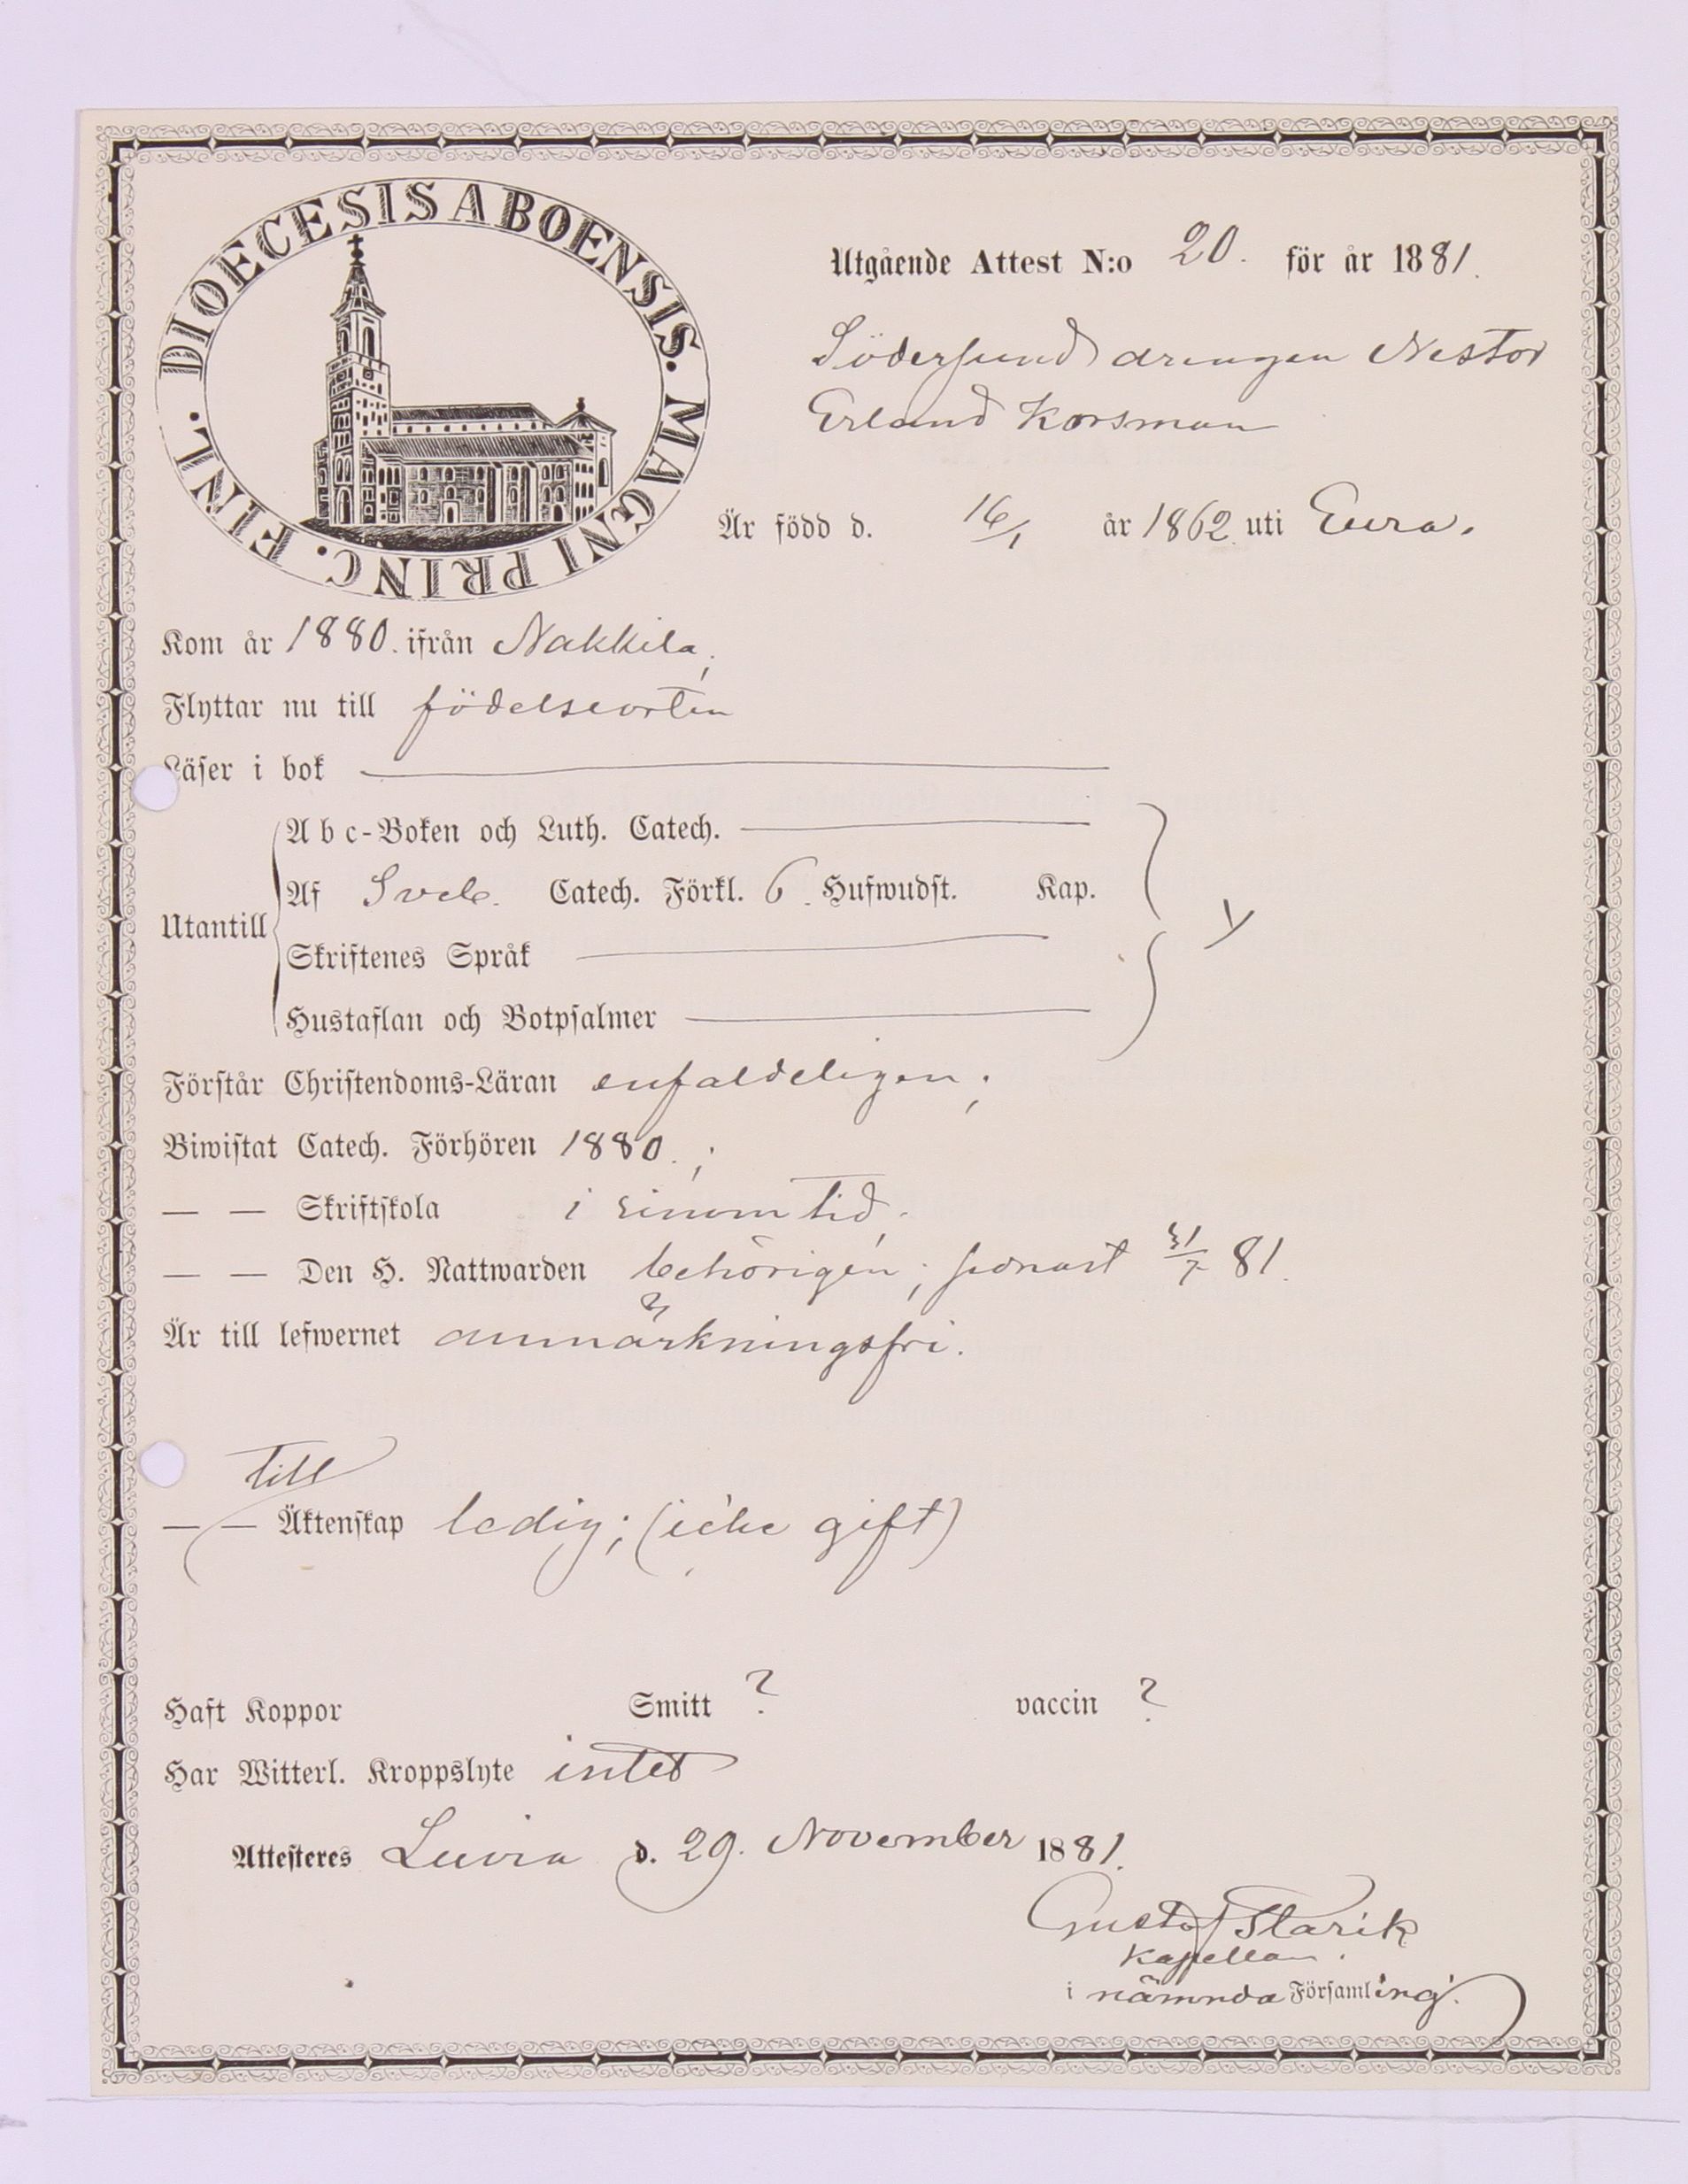 DIOECESIS ABOENSIS. MAGNI PRINC. FINL.
Utgående Attest N:o 20. för år 1881.
Södersund drengen Nestor
Erland Korsman
Är född d. 16/1 år 1862 uti Eura.
Kom år 1880. ifrån Nakkila;
Flyttar nu till födelseorten
Läser i bok
Utantill
Abc-Boken och Luth. Catech.
Af Sveb. Catech. Förkl. 6. Hufwudst. Kap.
Skriftenes Språk
Hustaflan och Botpsalmer
Förstår Christendoms-Läran enfaldeligen;
Biwistat Catech. Förhören 1880.;
— — Skriftskola i sinom tid.
— — Den H. Nattwarden behörigen; senast 31/7 81.
Är till lefwernet anmärkningsfri.
till
— — Äktenskap ledig; (icke gift)
Haft Koppor Smitt ? vaccin ?
Har Witterl. Kroppslyte intet
Attesteres Luvia d. 29. November 1881.
Gustaf Starik
Kapellan.
i nämnda Församling.